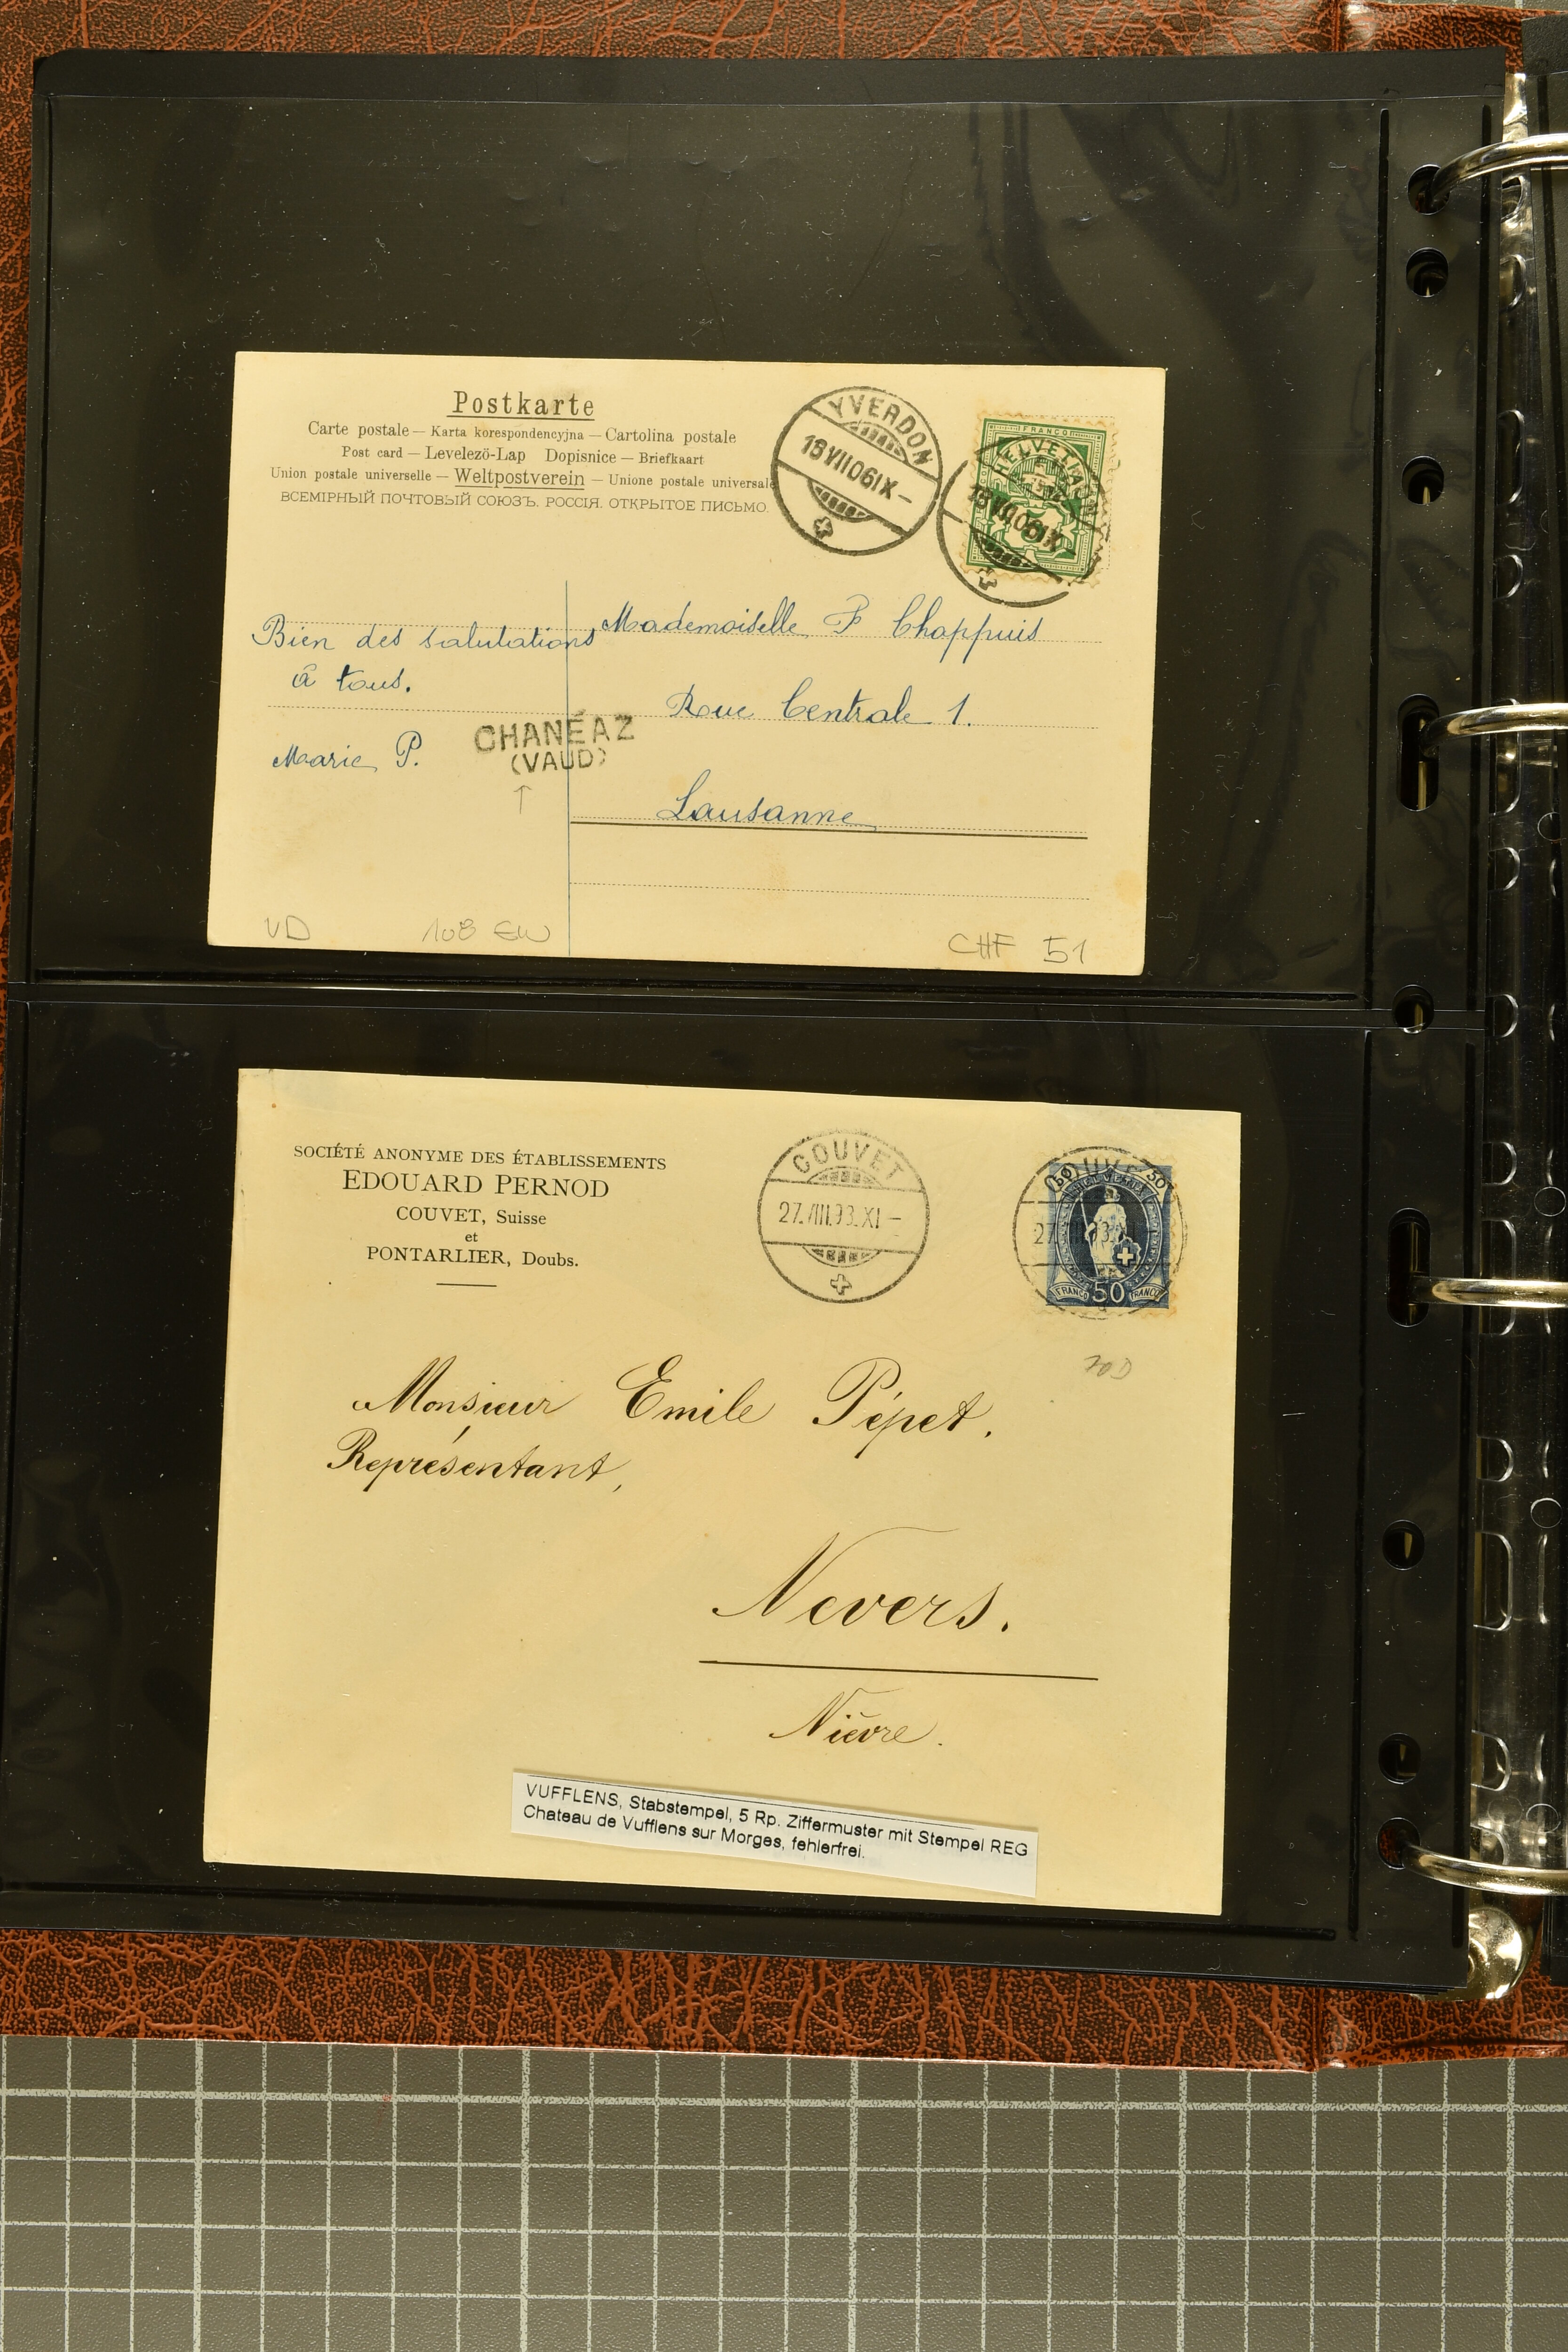 Postkarte
Carte postale — Karta korespondencyjna — Cartolina postale
Post card — Levelezö-Lap Dopisnice — Briefkaart
Union postale universelle — Weltpostverein — Unione postale universale
ВСЕМІРНЫЙ ПОЧТОВЫЙ СОЮЗЪ. РОССІЯ. ОТКРЫТОЕ ПИСЬМО.
YVERDON
18 VII 06 IX –
FRANCO
HELVETIA
18 VII 06 IX
Bien des salutations
à tous.
Marie P.
Mademoiselle F Chappuis
Rue Centrale 1.
Lausanne
CHANÉAZ
(VAUD)
VD
108 EW
CHF 51
SOCIÉTÉ ANONYME DES ÉTABLISSEMENTS
EDOUARD PERNOD
COUVET, Suisse
et
PONTARLIER, Doubs.
COUVET
27.VIII.93.XI –
50 50
FRANCO 50 FRANCO
70D
Monsieur Emile Pépet.
Représentant,
Nevers.
Nièvre.
VUFFLENS, Stabstempel, 5 Rp. Ziffermuster mit Stempel REG
Chateau de Vufflens sur Morges, fehlerfrei.